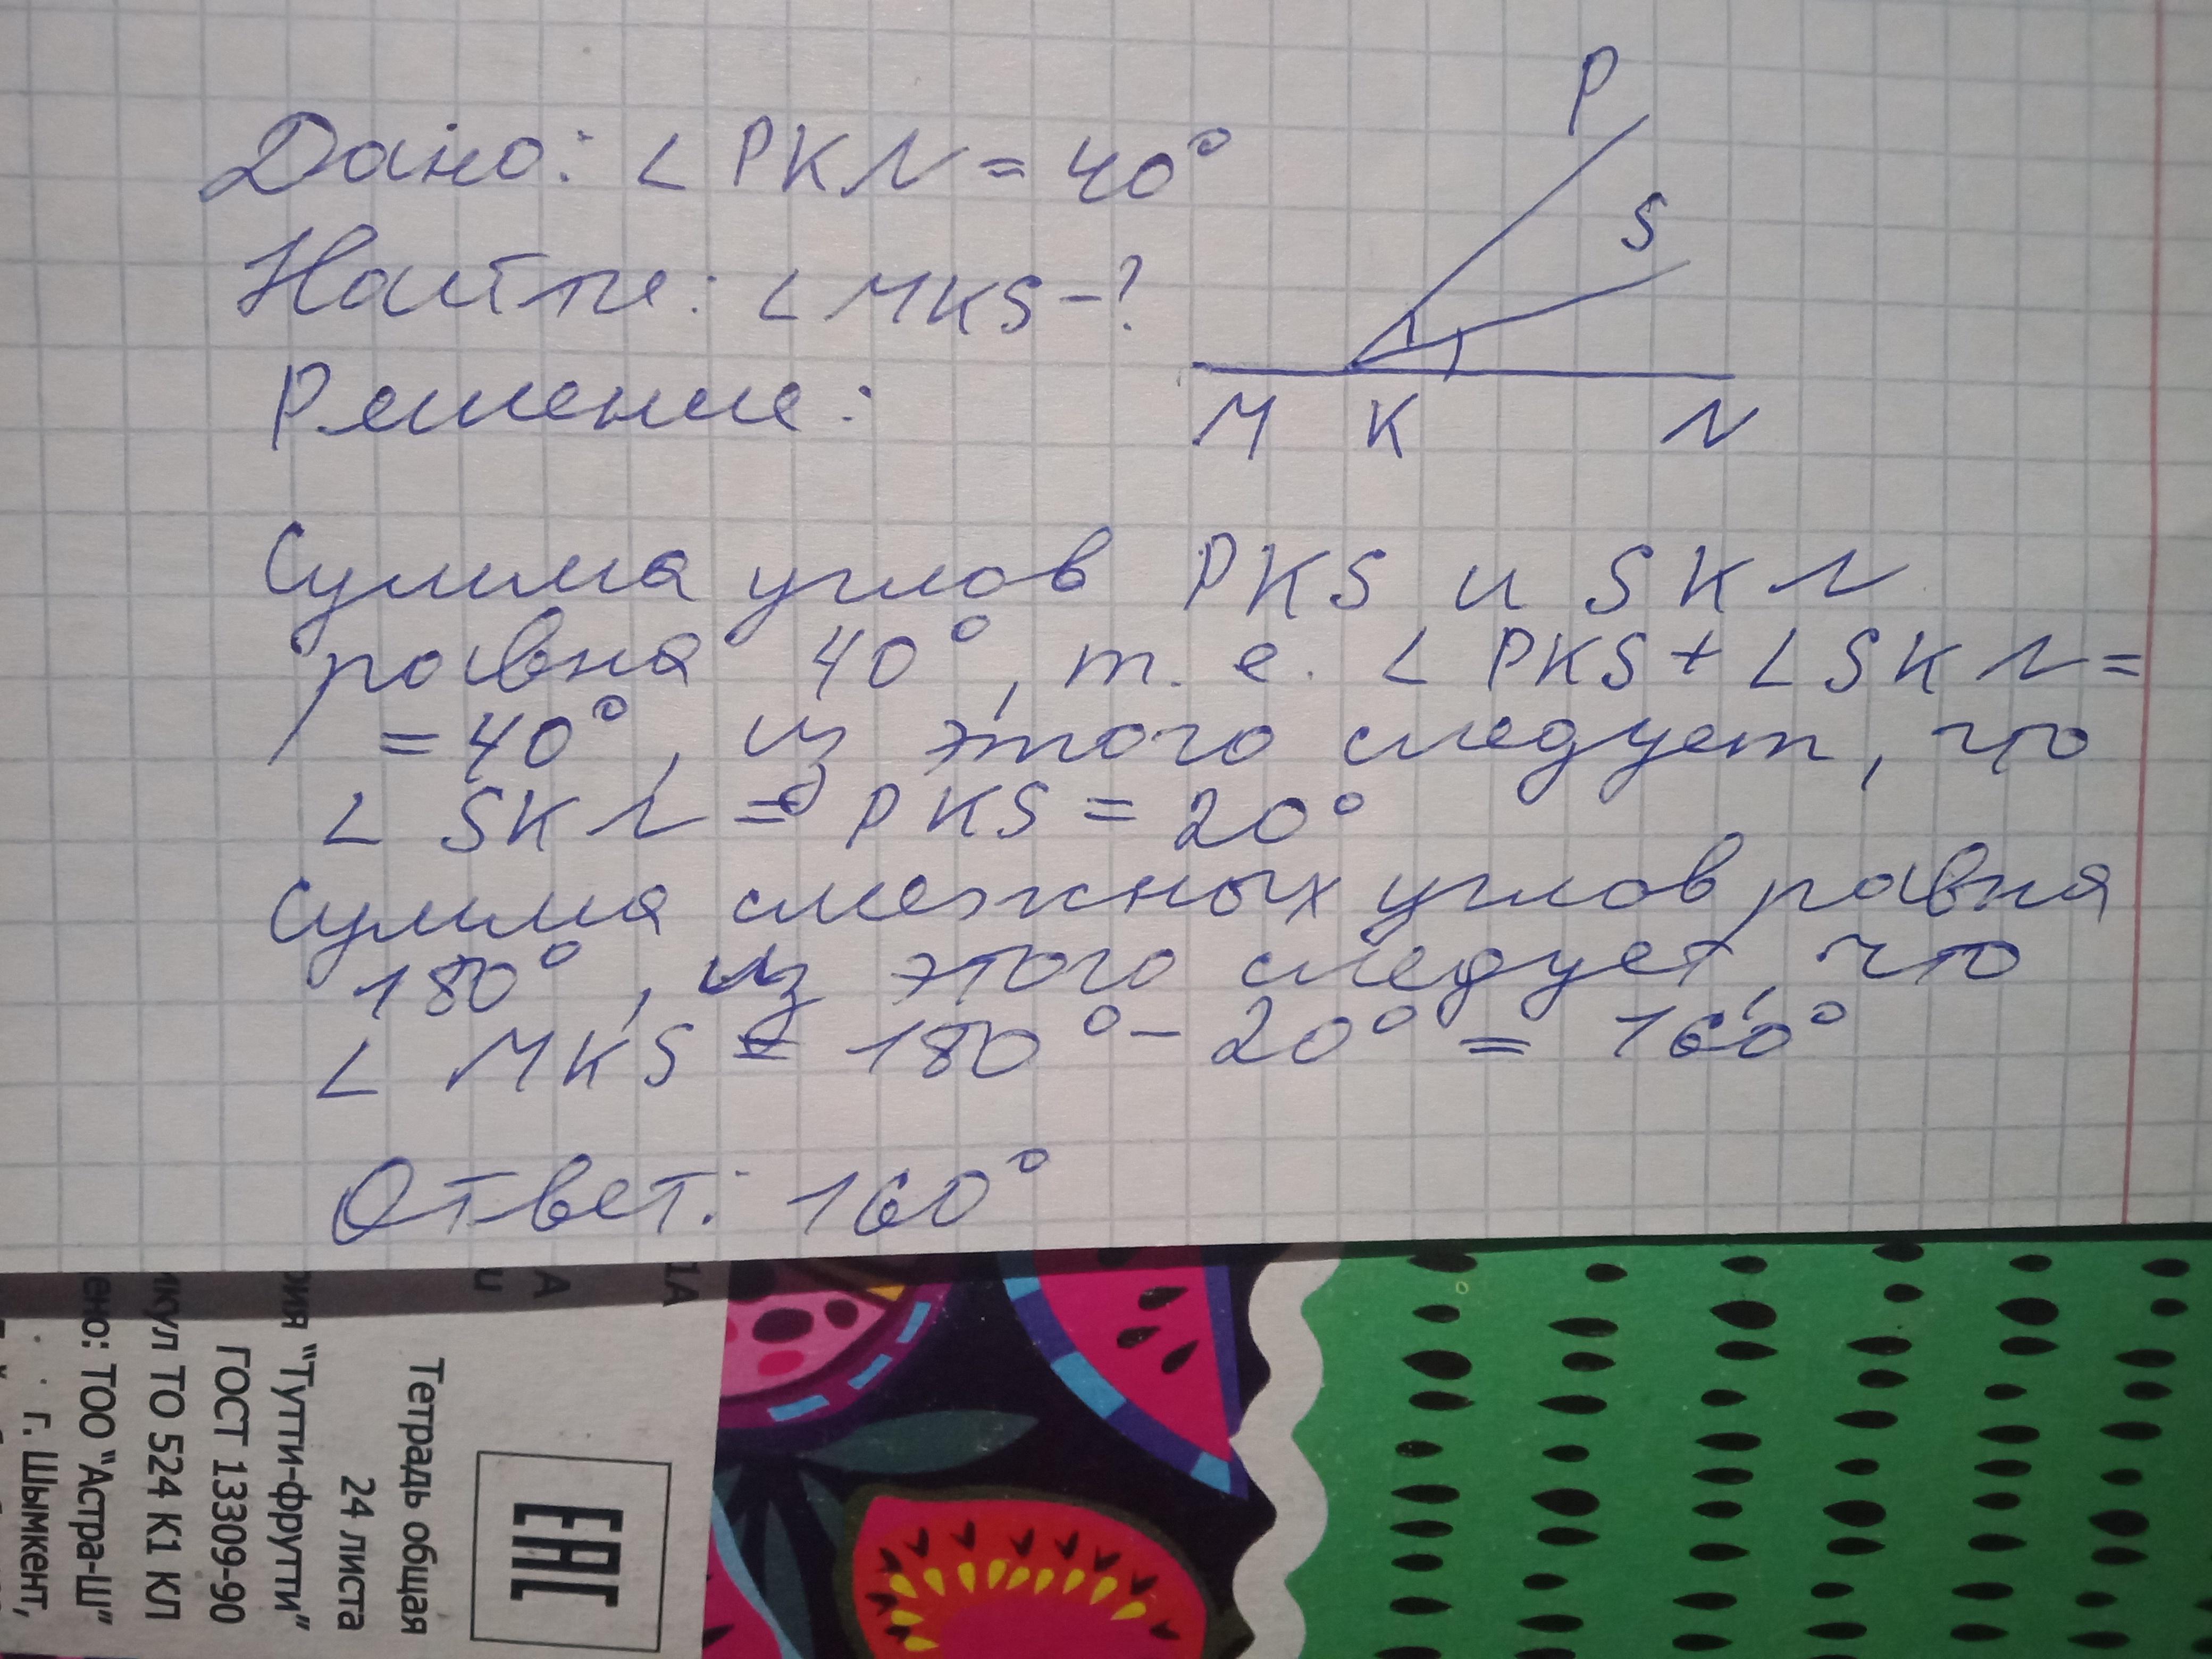 Дано: ∠ PKN = 40°
Найти: ∠ MKS - ?
Решение:
P
S
M K N
Сумма углов PKS и SKN
равна 40°, т. е. ∠ PKS + ∠ SKN =
= 40°, из этого следует, что
∠ SKN = PKS = 20°
Сумма смежных углов равна
180°, из этого следует, что
∠ MKS = 180° - 20° = 160°
Ответ: 160°
1А
А
u
Тетрадь общая
24 листа
"Тутти-фрутти"
ГОСТ 13309-90
ТО 524 К1 КЛ
ТОО "Астра-Ш"
г. Шымкент,
ЕАС